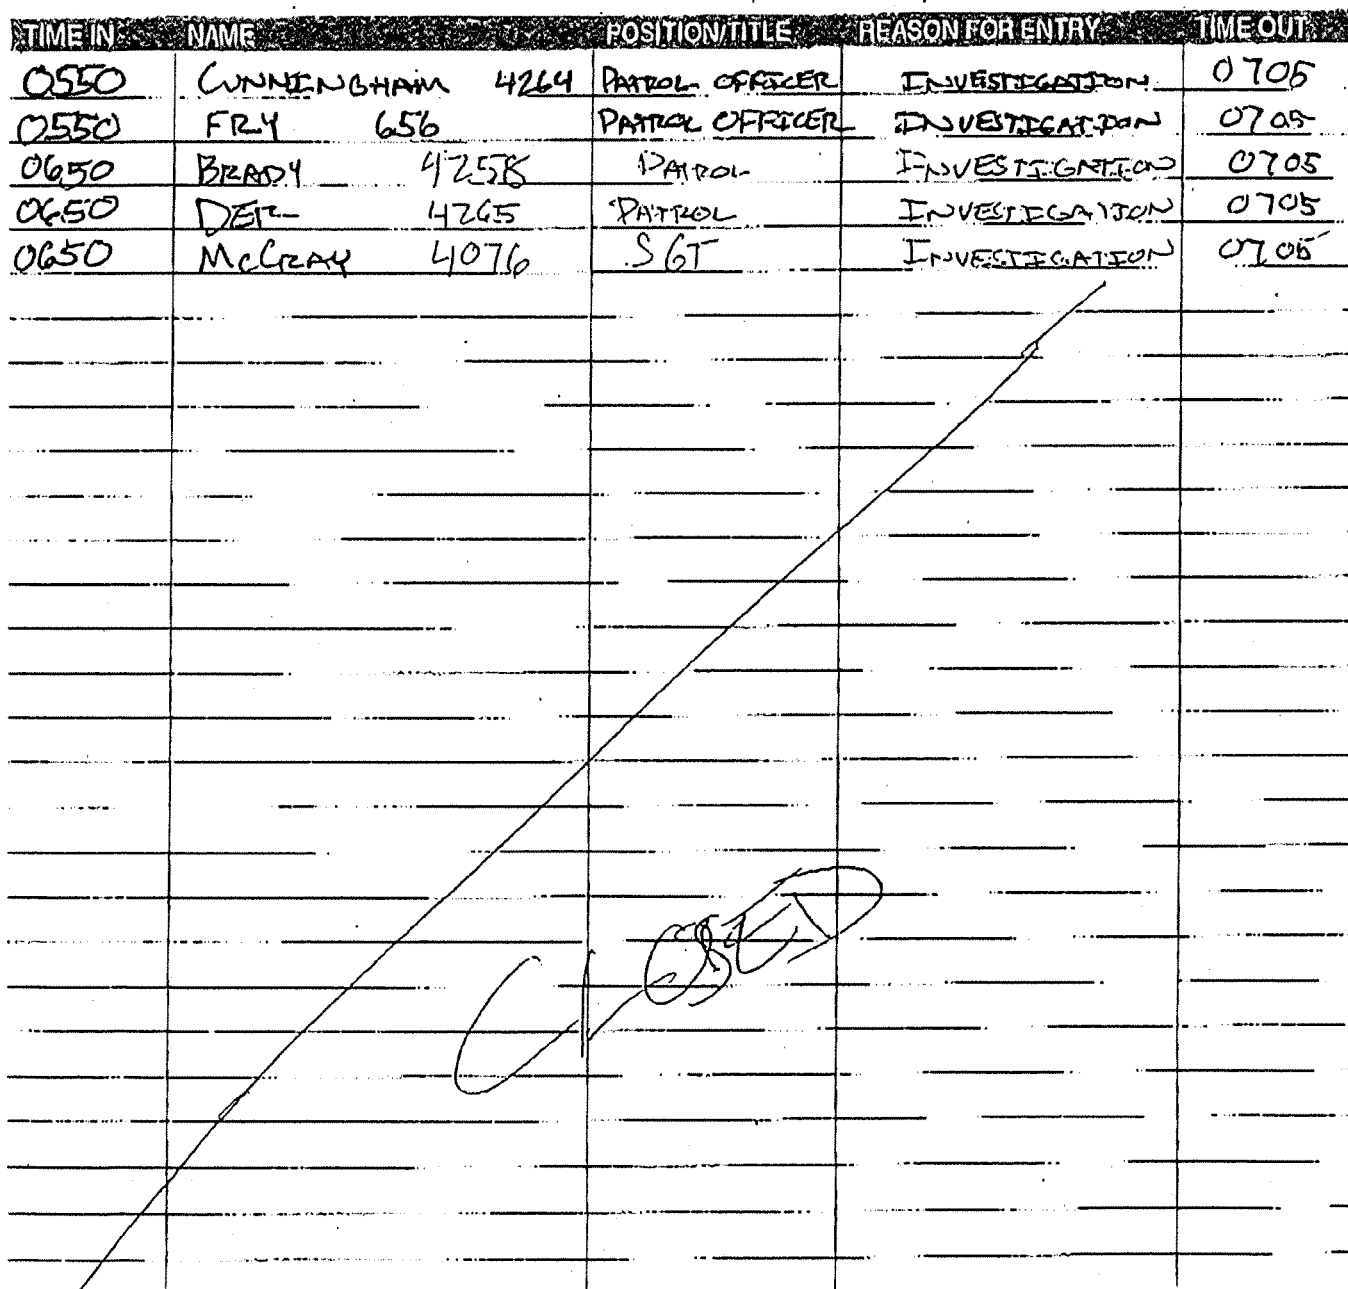 TIME IN NAME POSITION/TITLE REASON FOR ENTRY TIME OUT
0550 CUNNINGHAM 4264 PATROL OFFICER INVESTIGATION 0705
0550 FRY 656 PATROL OFFICER INVESTIGATION 0705
0650 BRADY 4258 PATROL INVESTIGATION 0705
0650 4265 PATROL INVESTIGATION 0705
0650 McCRAY 4076 SGT INVESTIGATION 0705
CLOSED